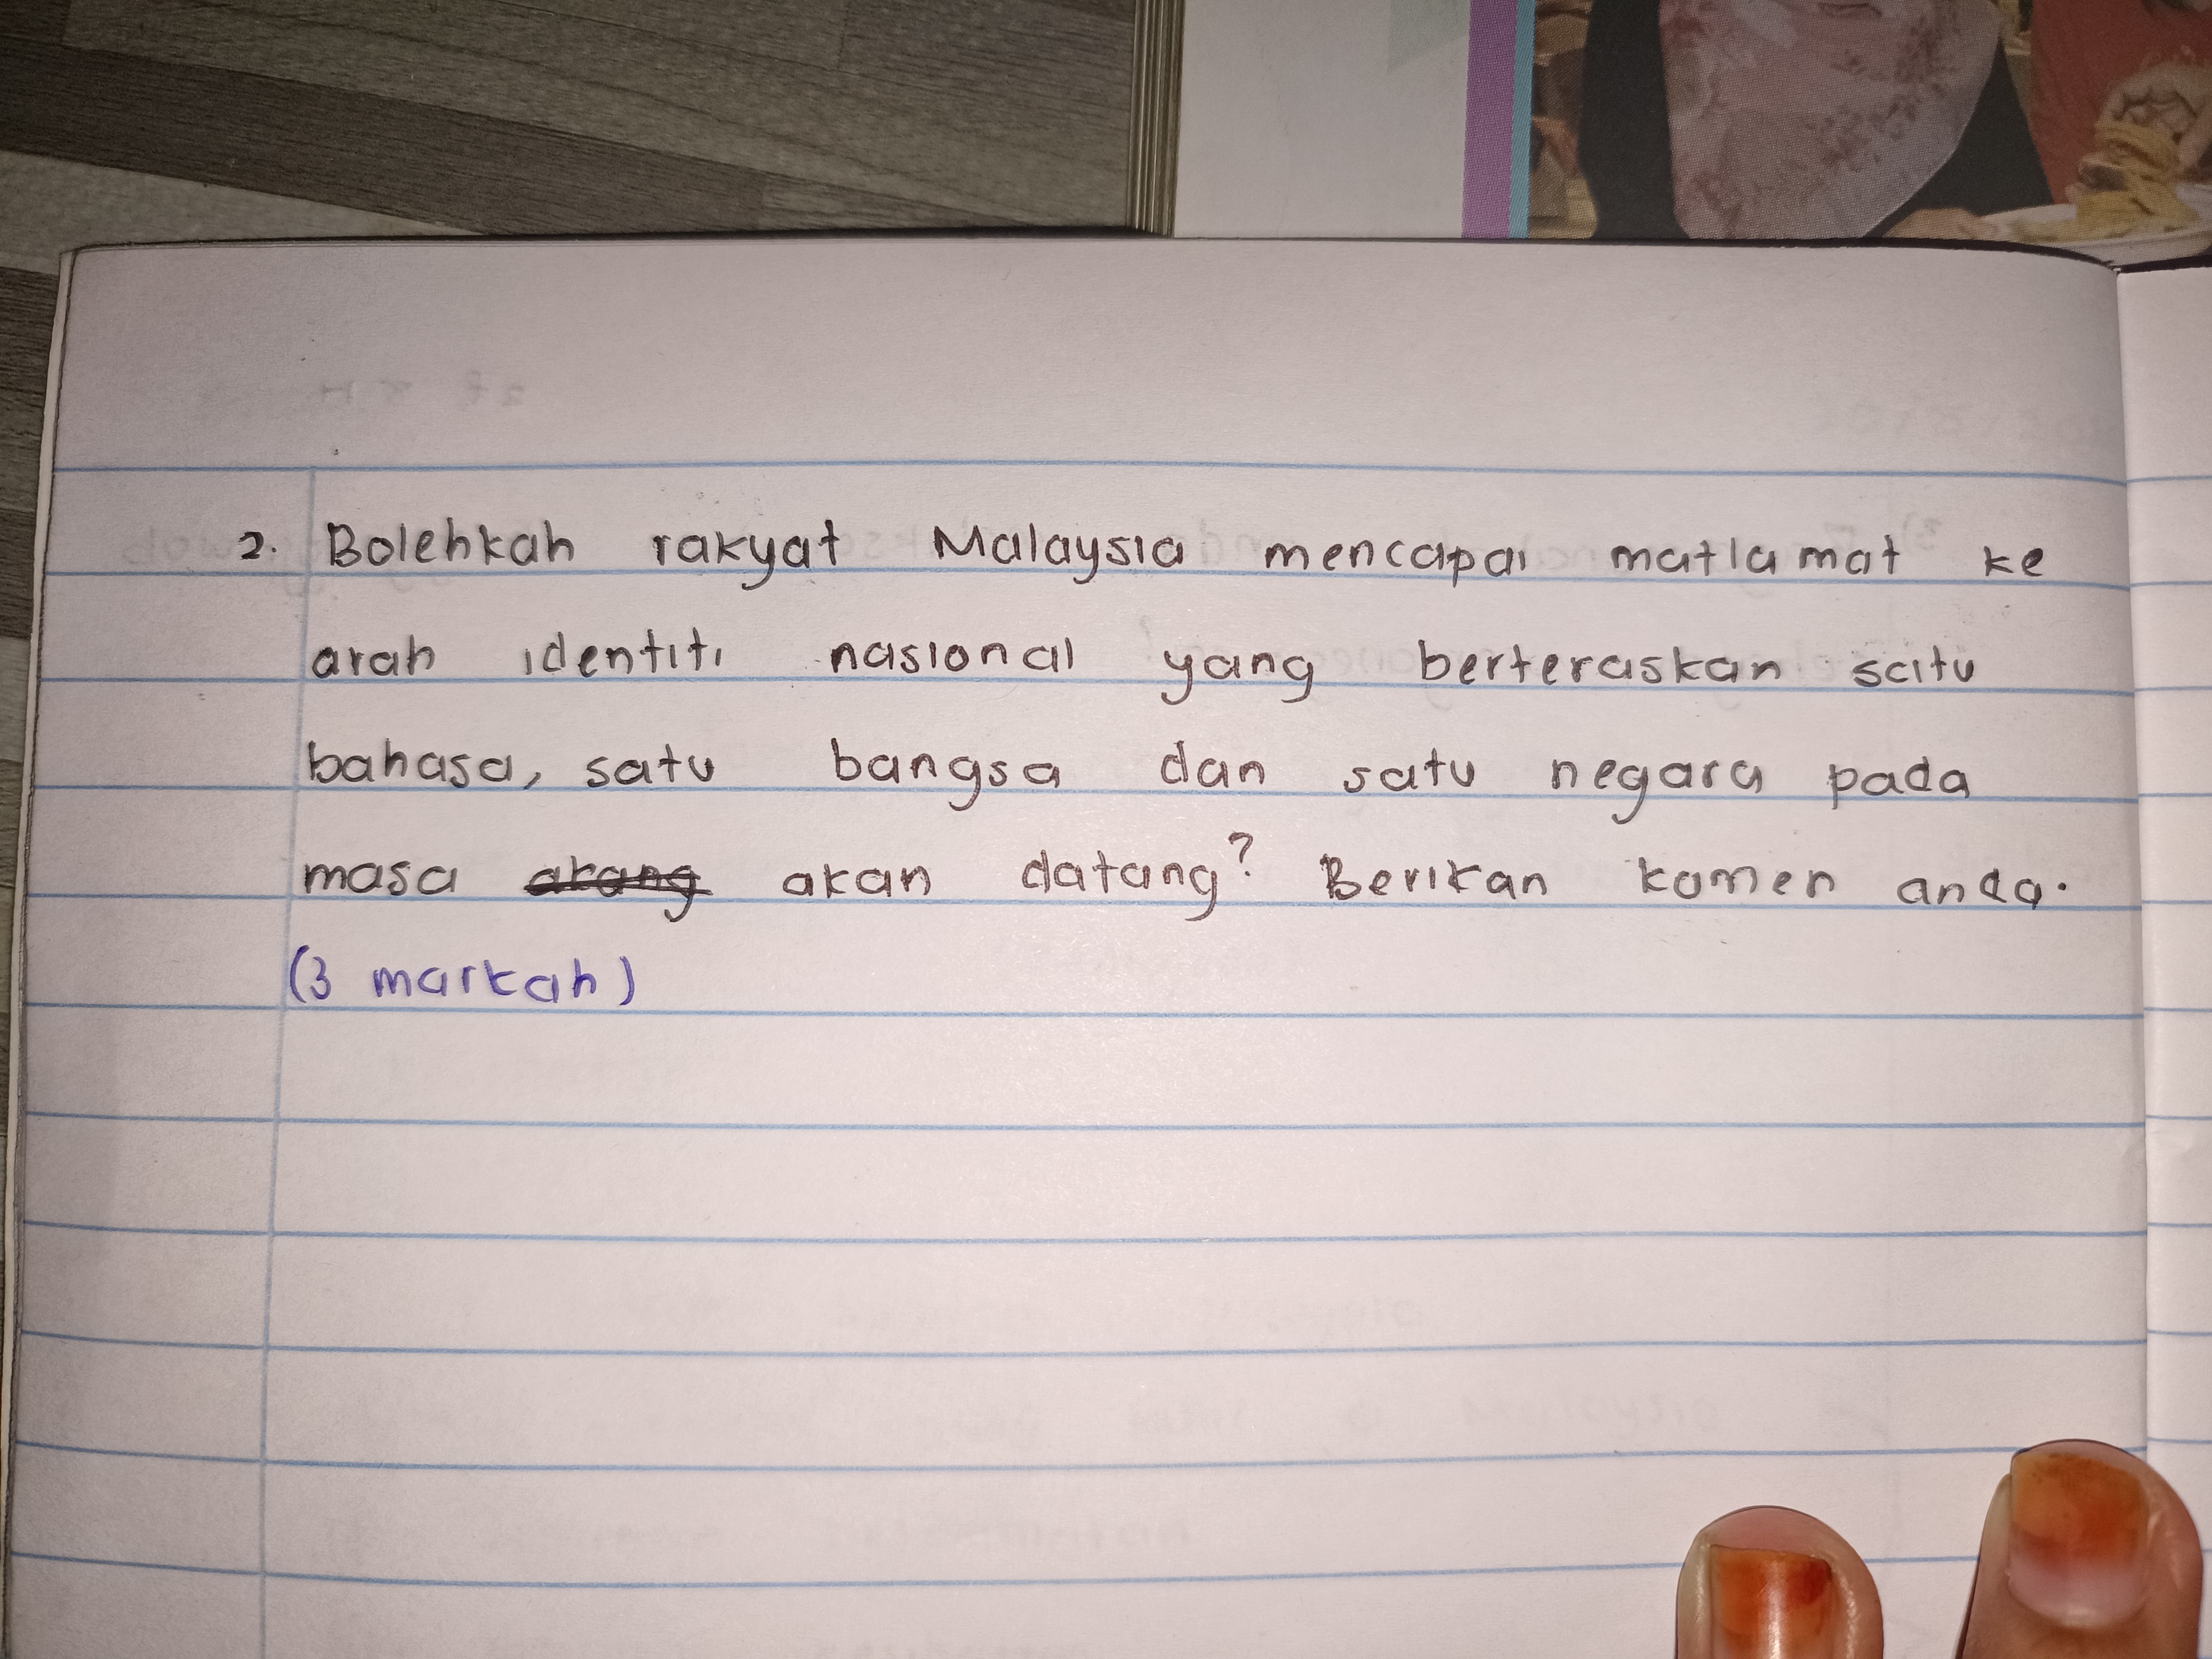 2. Bolehkah rakyat Malaysia mencapai matlamat ke
arah identiti nasional yang berteraskan satu
bahasa, satu bangsa dan satu negara pada
masa akan datang? Berikan komen anda.
(3 markah)